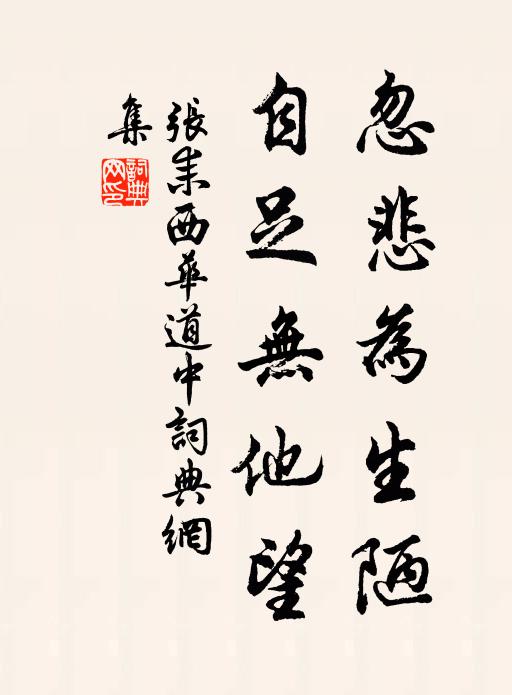 忽悲為生陋
自足無他望
張耒西華道中詞典網
集
詞典網印